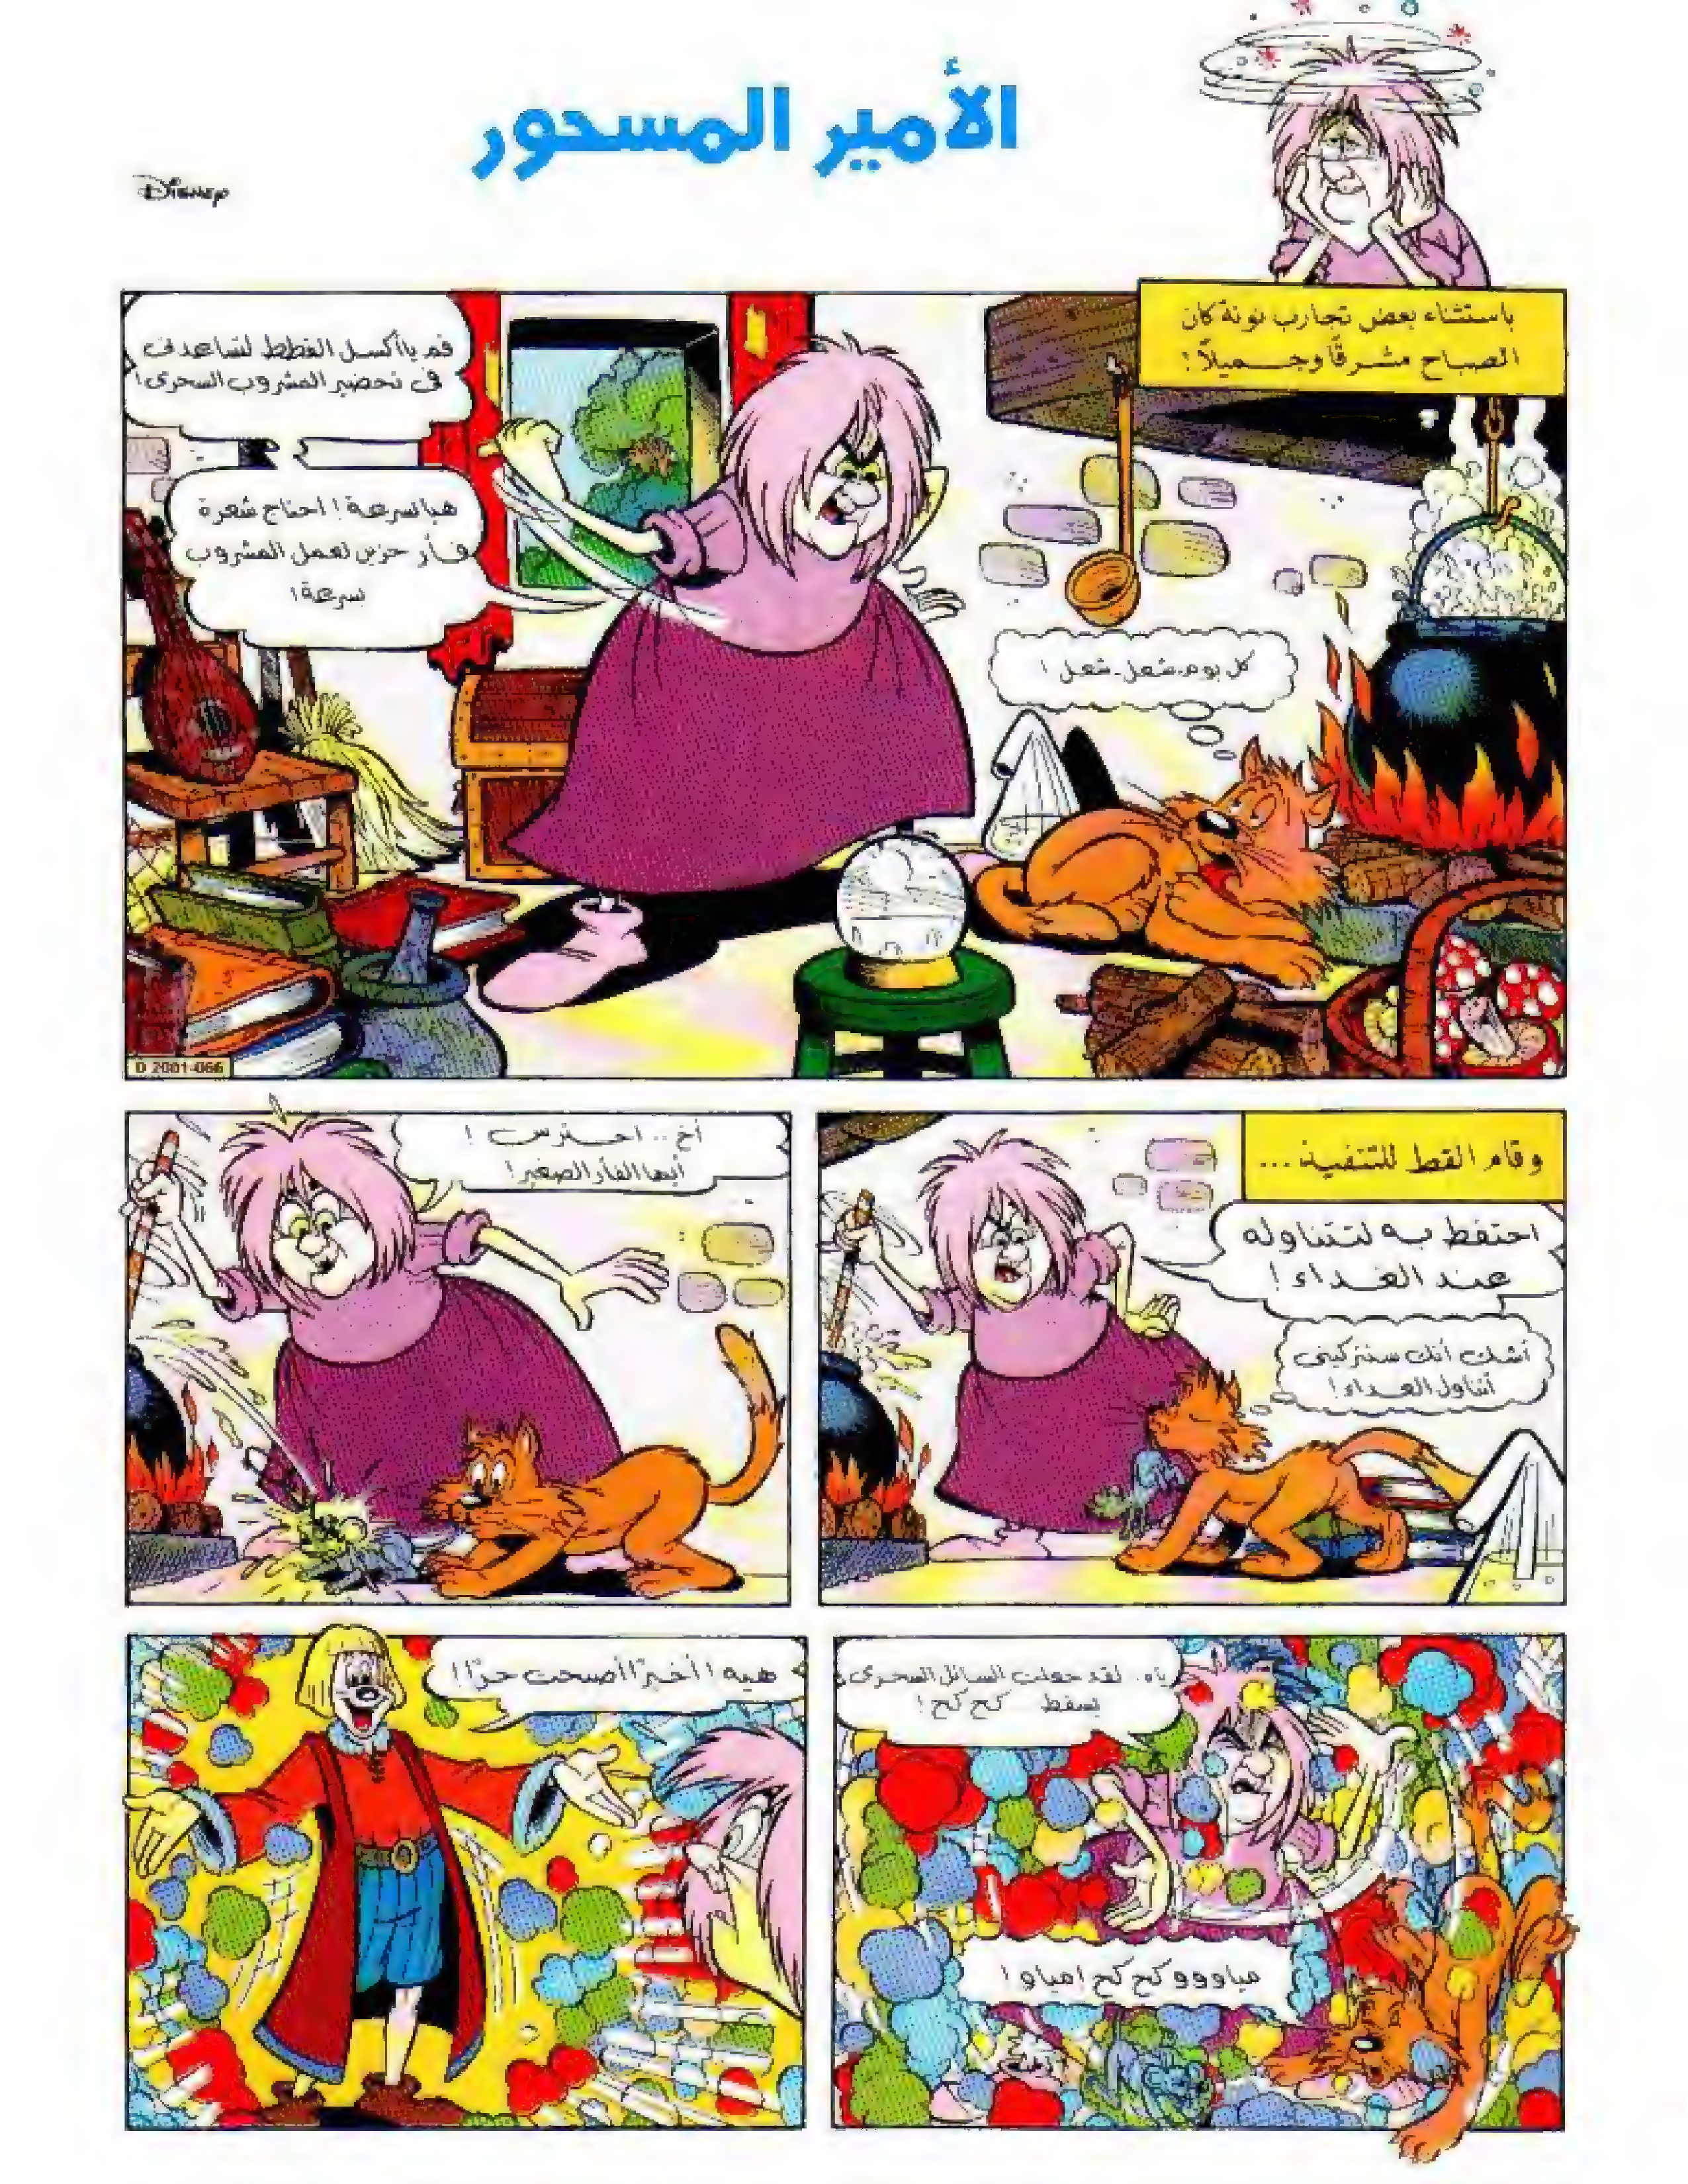 الأمير المسحور
Disney
باستثناء بعض تجارب نونة كان
الصباح مشرقًا وجميلًا!
قم ياأكسل القطط لتساعدنى
فى تحضير المشروب السحرى!
هيا بسرعة! احتاج شعرة
فأر حزين لعمل المشروب
بسرعة!
كل يوم.. شغل.. شغل!
D 2001-066
وقام القط للتنفيذ...
احتفظ به لتتناوله
عند الغداء!
أشك أنك ستتركينى
أتناول الغداء!
أخ.. احترس!
أيها الفأر الصغير!
ياه.. لقد جعلت السائل السحرى
يسقط كح كح!
مياووو كح كح! مياو!
هيه! أخيرًا أصبحت حرًا!